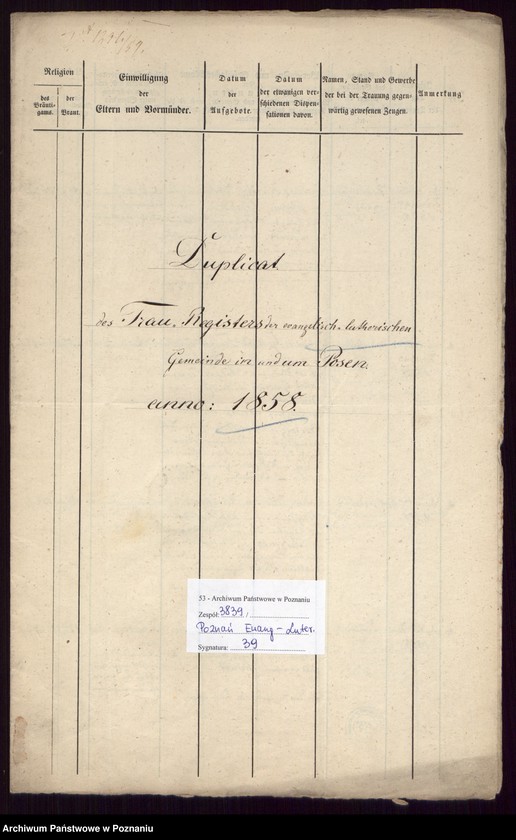 Religion
des Bräuti-gams.
der Braut.
Einwilligung
der
Eltern und Vormünder.
Datum
der
Aufgebote.
Datum
der etwanigen ver-
schiedenen Dispen-
sationen davon.
Namen, Stand und Gewerbe
der bei der Trauung gegen-
wärtig gewesenen Zeugen.
Anmerkung
Duplicat
des Trau-Registers der evangelisch-lutherischen
Gemeinde in und um Posen.
anno: 1858.
53 - Archiwum Państwowe w Poznaniu
Zespół: 3839 /
Poznań Ewang-Luter.
Sygnatura: 39
Archiwum Państwowe w Poznaniu
Archiwum Państwowe w Poznaniu